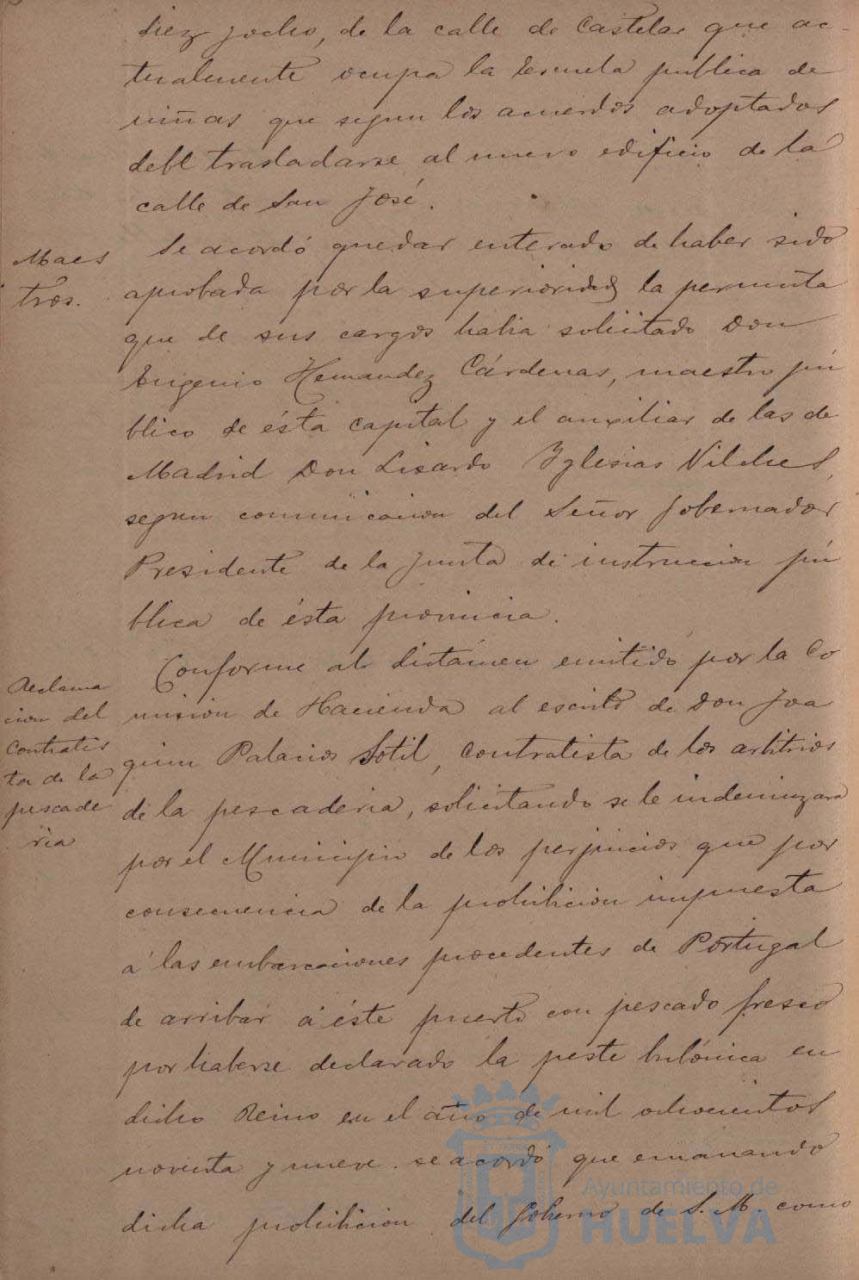 diez y ocho, de la calle de Castelar que ac-
tualmente ocupa la Escuela publica de
niñas que segun los acuerdos adoptados
debe trasladarse al nuevo edificio de la
calle de San José.
Maes
tros.
Se acordó quedar enterado de haber sido
aprobada por la superioridad la permuta
que de sus cargos habia solicitado Don
Eugenio Hernandez Cárdenas, maestro pú
blico de ésta capital y el auxiliar de las de
Madrid Don Lisardo Yglesias Vilches,
segun comunicacion del Señor Gobernador
Presidente de la Junta de instruccion pú
blica de ésta provincia.
Reclama
cion del
contratis
ta de la
pescade
ria
Conforme al dictámen emitido por la Co
mision de Hacienda al escrito de Don Joa
quin Palacios Sotil, contratista de los arbitrios
de la pescaderia, solicitando se le indemnizara
por el Municipio de los perjuicios que por
consecuencia de la prohibicion impuesta
á las embarcaciones procedentes de Portugal
de arribar á éste puerto con pescado fresco
por haberse declarado la peste bubónica en
dicho Reino en el año de mil ochocientos
noventa y nueve. se acordó que emanando
dicha prohibicion del Gobierno de S. M. como
Ayuntamiento de
HUELVA